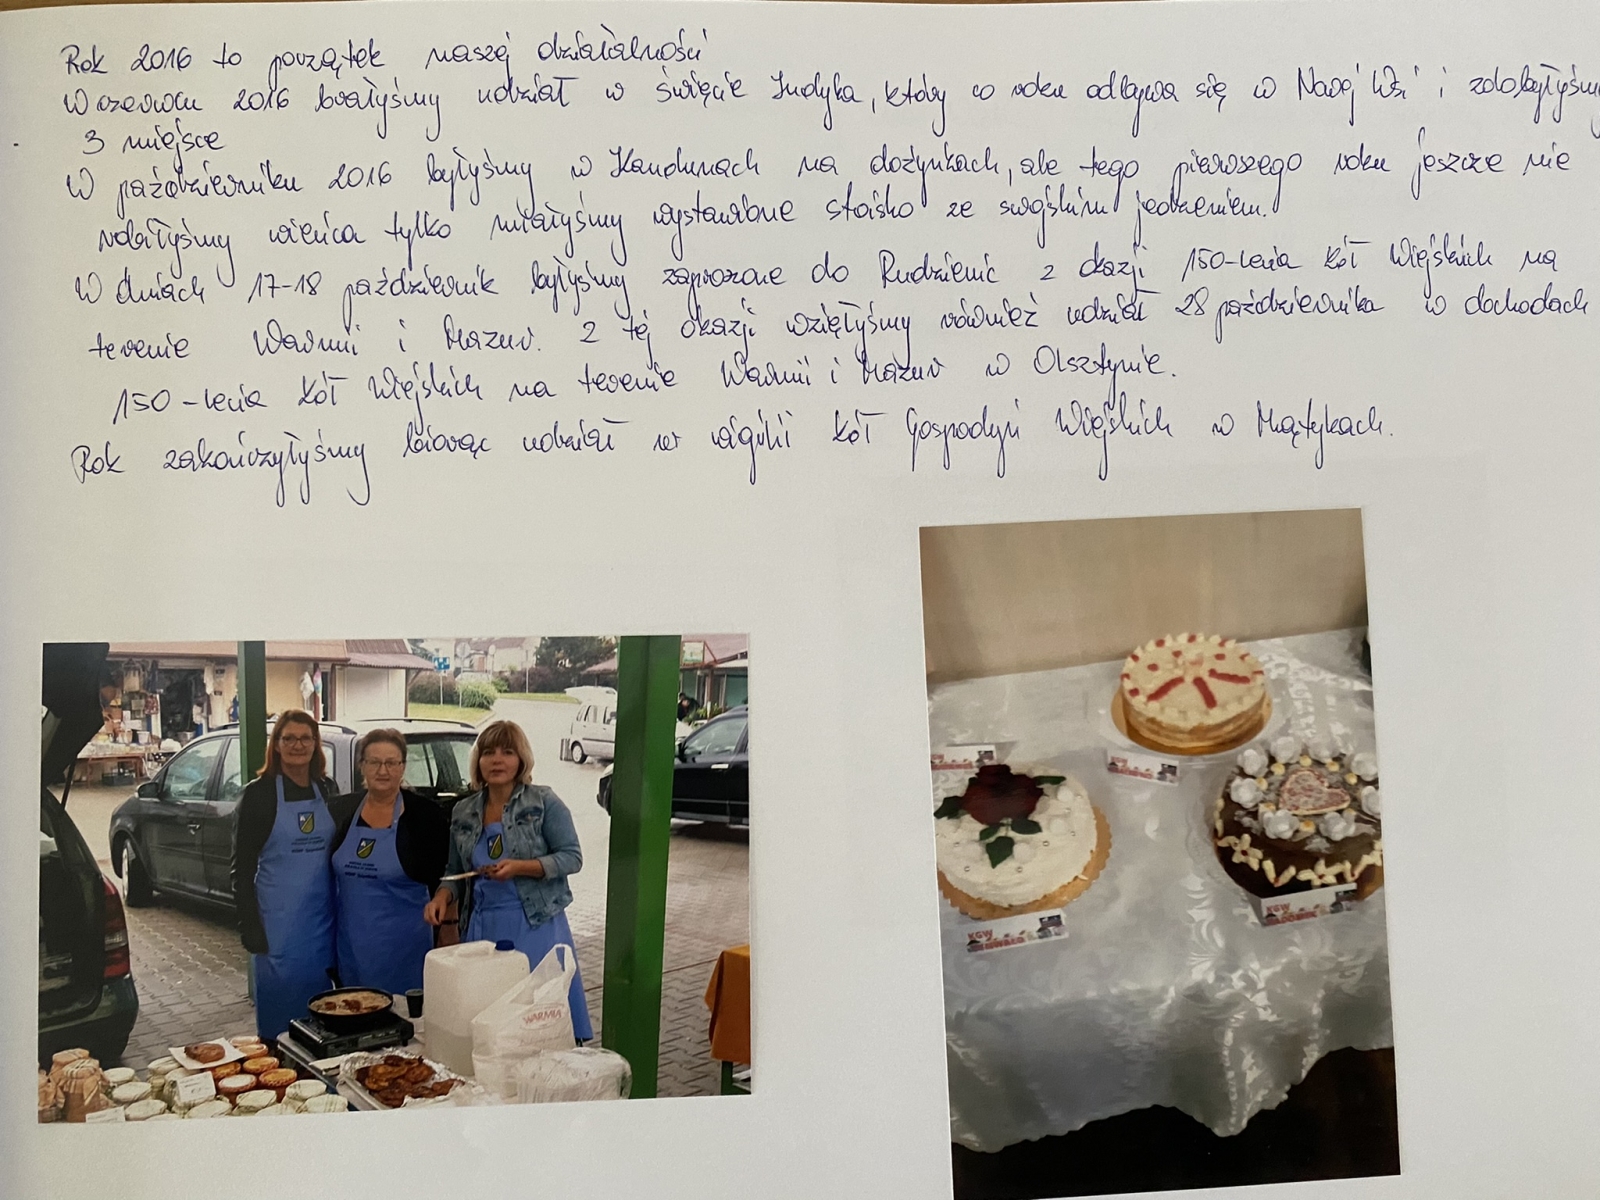 Rok 2016 to początek naszej działalności
W czerwcu 2016 brałyśmy udział w święcie Indyka, który co roku odbywa się w Nowej Wsi i zdobyłyśmy
3 miejsce
W październiku 2016 byłyśmy w Kandunach na dożynkach, ale tego pierwszego roku jeszcze nie
robiłyśmy wieńca tylko miałyśmy wystawione stoisko ze swojskim jedzeniem.
W dniach 17-18 październik byłyśmy zaproszone do Rudzienic z okazji 150-lecia kół Wiejskich na
terenie Warmii i Mazur. Z tej okazji wzięłyśmy również udział 28 października w dochodach
150-lecia kół Wiejskich na terenie Warmii i Mazur w Olsztynie.
Rok zakończyłyśmy biorąc udział w wigilii kół Gospodyń Wiejskich w Mątykach.
WARMIA
KGW
KGW